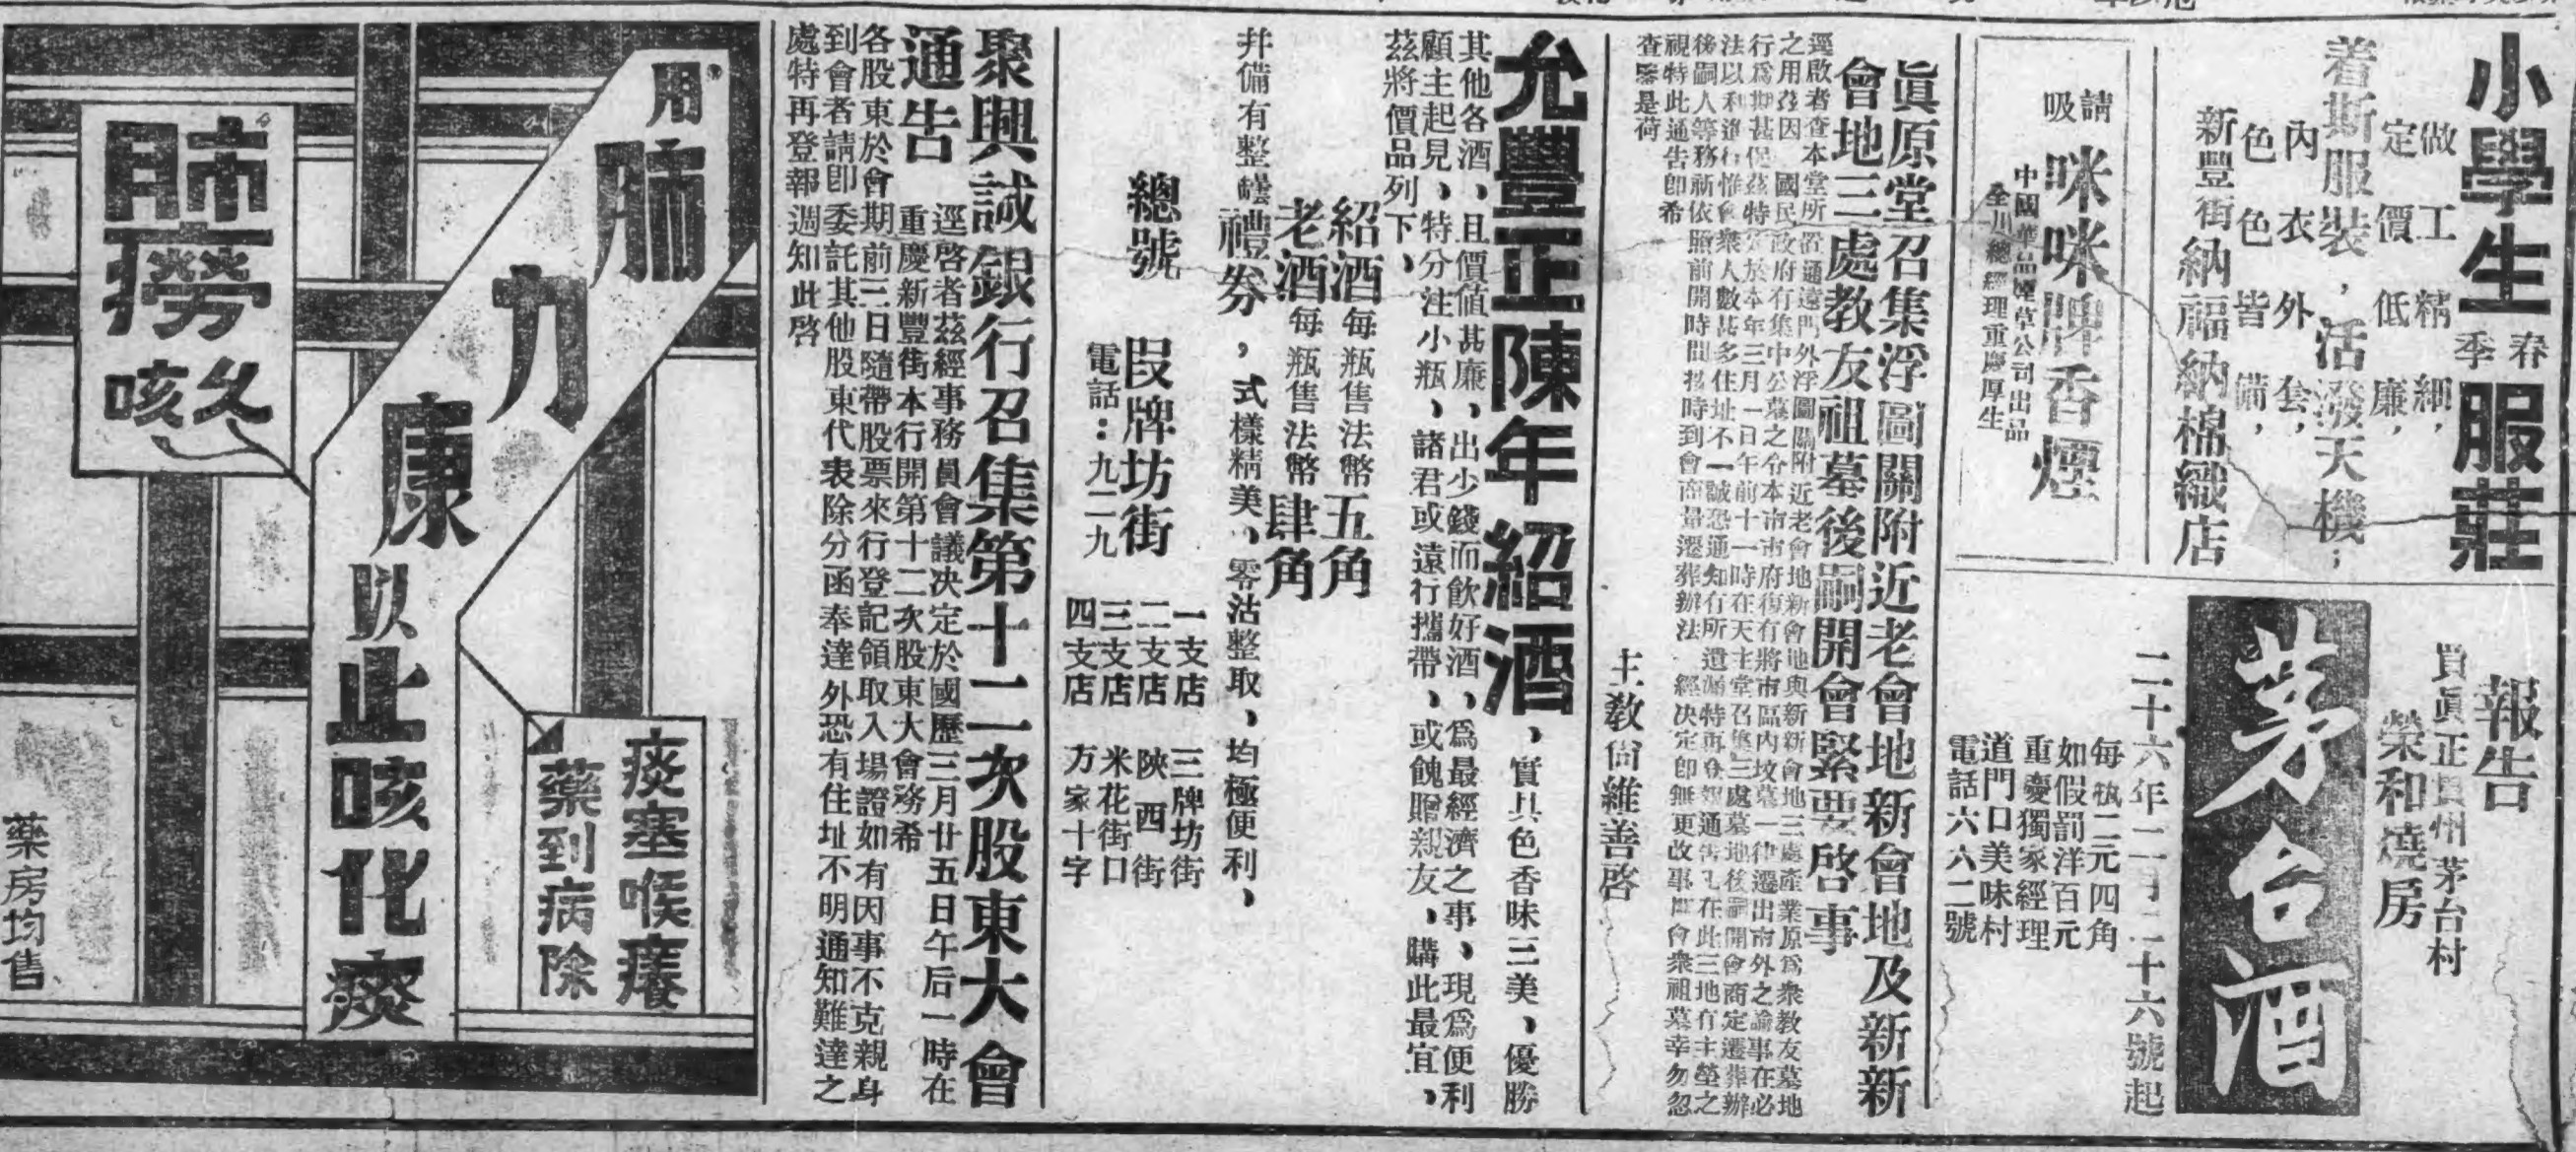 小學生春季服莊
做工精細，
定價低廉，
着斯服裝，活潑天機；
內衣外套，
色色皆備，
新豐街納福納棉織店
請吸
咪咪牌香煙
中國華品煙草公司出品
全川總經理重慶厚生
報告
買眞正貴州茅台村
榮和燒房
茅台酒
二十六年二月二十六號起
每瓶二元四角
如假罰洋百元
重慶獨家經理
道門口美味村
電話六六二號
眞原堂召集浮圖關附近老會地新會地及新新
會地三處教友祖墓後嗣開會緊要啓事
逕啟者查本堂所置通遠門外浮圖關附近老會地新會地與新新會地三處產業原爲衆教友墓地
之用茲因國民政府有集中公墓之令本市市府復有將市區內坟墓一律遷出市外之諭事在必
行爲期甚促茲特定於本年三月一日午前十一時在天主堂召集三處墓地後嗣開會商定遷葬辦
法以利進行惟會衆人數甚多住址不一誠恐通知有所遺漏特再登報通告凡在此三地有主塋之
後嗣人等務祈依照前開時間按時到會商量遷葬辦法一經決定卽無更改事關會衆祖墓幸勿忽
視特此通告卽希
查照是荷
主教尙維善啓
允豐正陳年紹酒、實具色香味三美、優勝
其他各酒、且價值甚廉、出少錢而飲好酒、爲最經濟之事、現爲便利
顧主起見、特分注小瓶、諸君或遠行攜帶、或餽贈親友、購此最宜、
茲將價品列下、
紹酒每瓶售法幣五角
老酒每瓶售法幣肆角
幷備有整罎禮券，式樣精美、零沽整取、均極便利、
總號 段牌坊街
電話：九二九
一支店 三牌坊街
二支店 陝西街
三支店 米花街口
四支店 方家十字
聚興誠銀行召集第十二次股東大會
通告
逕啓者茲經事務員會議決定於國曆三月廿五日午后一時在
重慶新豐街本行開第十二次股東大會務希
各股東於會期前三日隨帶股票來行登記領取入場證如有因事不克親身
到會者請卽委託其他股東代表除分函奉達外恐有住址不明通知難達之
處特再登報週知此啓
用肺力康以止咳化痰
肺癆
久咳
痰塞喉癢
藥到病除
藥房均售